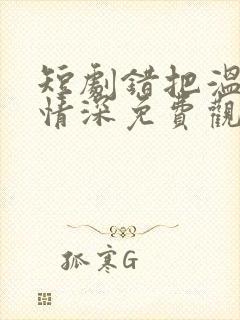 短劇錯把溫
情深免費觀
孤寒G